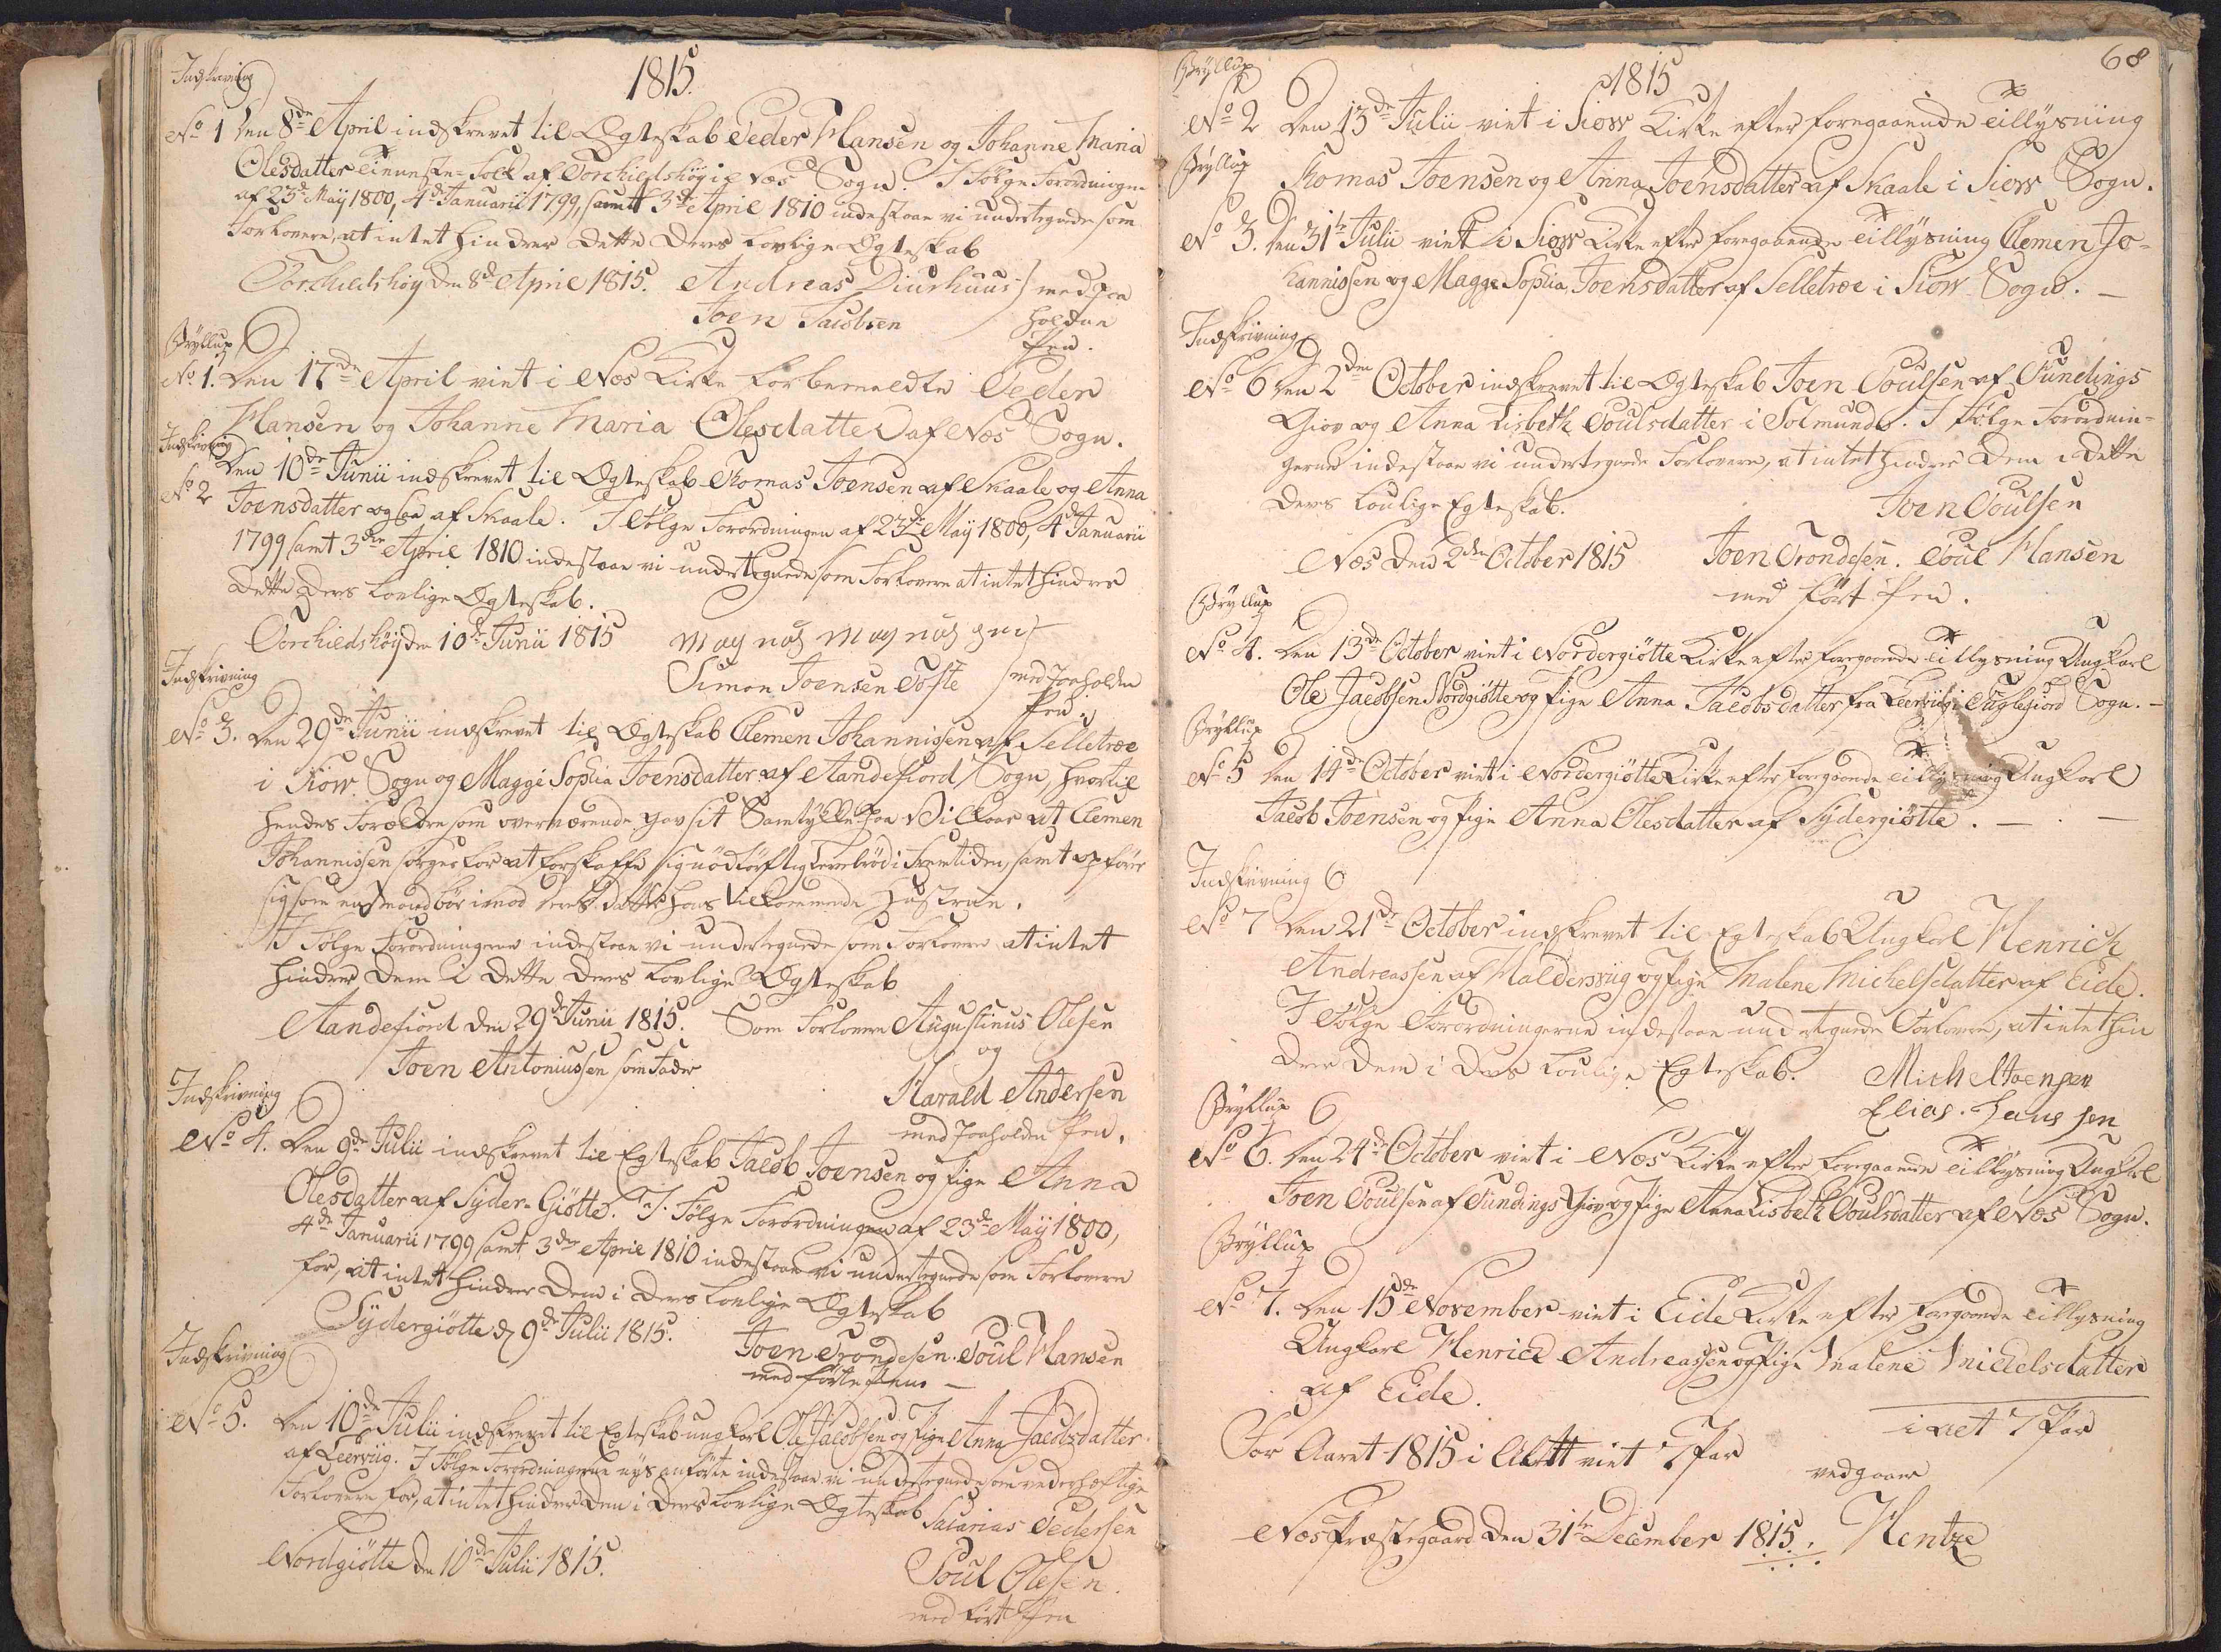 1815.
Indskrivning
No 1 Den 8de April indskrevet til Ægteskab Peder Hansen og Johanne Maria
Olesdatter Tienneste-Folk af Torchildshöj i Næs Sogn. I Fölge Forordningen
af 23de Maij 1800, 4de Januarii 1799, samt 3die April 1810 indestaae vi undertegnede som
Forlovere, at intet hindrer dette Deres lovlige Ægteskab
Torchildshöy den 8de April 1815. Andreas Diurhuus med paa
Joen Jacobsen holdne
Pen.
Bryllup
No 1. Den 17de April viet i Næs Kirke forbemeldte Peder
Hansen og Johanne Maria Olesdatter af Næs Sogn.
Indskrivning
No 2 Den 10de Junii indskrevet til Ægteskab Thomas Joensen af Skaale og Anna
Joensdatter ogsaa af Skaale. I Fölge Forordningen af 23de Maij 1800, 4de Januarii
1799 samt 3die April 1810 indestaae vi undertegnede som Forlovere at intet hindrer
dette Deres lovlige Ægteskab.
Torchildshöj den 10de Junii 1815
Simon Joensen Tofte med paaholden
Pen.
Indskrivning
No 3. Den 29de Junii indskrevet til Ægteskab Clemen Johannissen af Selletræ
i Siow Sogn og Maggi Sophia Joensdatter af Andefiord Sogn, hvortil
hendes Forældre som overværende gav sit Samtykke paa Vilkaar at Clemen
Johannissen sörger for at forskaffe sig nödtörftig Levebröd i Fremtiden, samt opförer
sig som en Mand bör imod deres Datter hans tilkommende Hustrue.
I Fölge Forordningerne indestaae vi undertegnede som Forlovere at intet
hindrer Dem i dette Deres lovlige Ægteskab
Andefiord den 29de Junii 1815. Som Forlovere Augustinus Olesen
og
Joen Antoniussen som Fader
Harald Andersen
med paaholden Pen.
Indskrivning
No 4. Den 9de Julii indskrevet til Egteskab Jacob Joensen og Pige Anna
Olesdatter af Syder-Giötte. I Fölge Forordningen af 23de Maij 1800,
4de Januarii 1799 samt 3die April 1810 indestaae vi undertegnede som Forlovere
for, at intet hindrer Dem i Deres lovlige Ægteskab
Sydergiötte d 9de Julii 1815. Joen Trondesen. Poul Hansen
med förte Pen. —
Indskrivning
No 5. Den 10de Julii indskrevet til Egteskab ungkarl Ole Jacobsen og Pige Anna Jacobsdatter
af Leervüg. I Fölge Forordningerne nys anförte indestaae vi undertegnede som vederhæftige
Forlovere for, at intet hindrer Dem i Deres lovlige Ægteskab
Sacarias Pedersen
Nordgiötte den 10de Julii 1815.
Poul Olesen.
med fört Pen
68
1815
Bryllup
No 2 Den 13de Julii viet i Siow Kirke efter foregaaende Tillysning
Thomas Joensen og Anna Joensdatter af Skaale i Siow Sogn.
Bryllup
No 3. Den 31te Julii viet i Siow Kirke efter foregaaende Tillysning Clemen Jo-
hannissen og Magge Sophia Joensdatter af Selletræ i Siow Sogn. —
Indskrivning
No 6 Den 2den October indskrevet til Ægteskab Joen Poulsen af Fundings
Giov og Anna Lisbeth Poulsdatter i Solmunde. I Fölge Forordnin-
gerne indestaae vi undertegnede Forlovere, at intet hindrer Dem i dette
Deres lovlige Egteskab.
Joen Poulsen
Næs den 2den October 1815 Joen Trondesen. Poul Hansen
med fört Pen.
Bryllup
No 4. Den 13de October viet i Nordergiötte Kirke efter foregaaende Tillysning Ungkarl
Ole Jacobsen Nordgiötte og Pige Anna Jacobsdatter fra Leervüg i Fuglefiord Sogn. —
Bryllup
No 5 Den 14de October viet i Nordergiötte Kirke efter foregaaende Tillysning Ungkarl
Jacob Joensen og Pige Anna Olesdatter af Sydergiötte. —
Indskrivning
No 7 Den 21de October indskrevet til Egteskab Ungkarl Henrich
Andreassen af Haldersvüg og Pige Malene Michelsdatter af Eide.
I Fölge Forordningerne indestaae undertegnede Forlovere, at intet hin
drer Dem i Deres lovlige Egteskab.
Michel Joensen
Elias. Hansen
Bryllup
No 6. Den 24de October viet i Næs Kirke efter foregaaende Tillysning Ungkarl
Joen Poulsen af Fundings Giov og Pige Anna Lisbeth Poulsdatter af Næs Sogn.
Bryllup
No 7. Den 15de November viet i Eide Kirke efter foregaaende Tillysning
Ungkarl Henrick Andreassen og Pige Malene Mickelsdatter
af Eide.
i alt 7 Par
For Aaret 1815 i Alt viet 7 Par
vedgaaer
Næs Præstegaard den 31te December 1815. Hentze